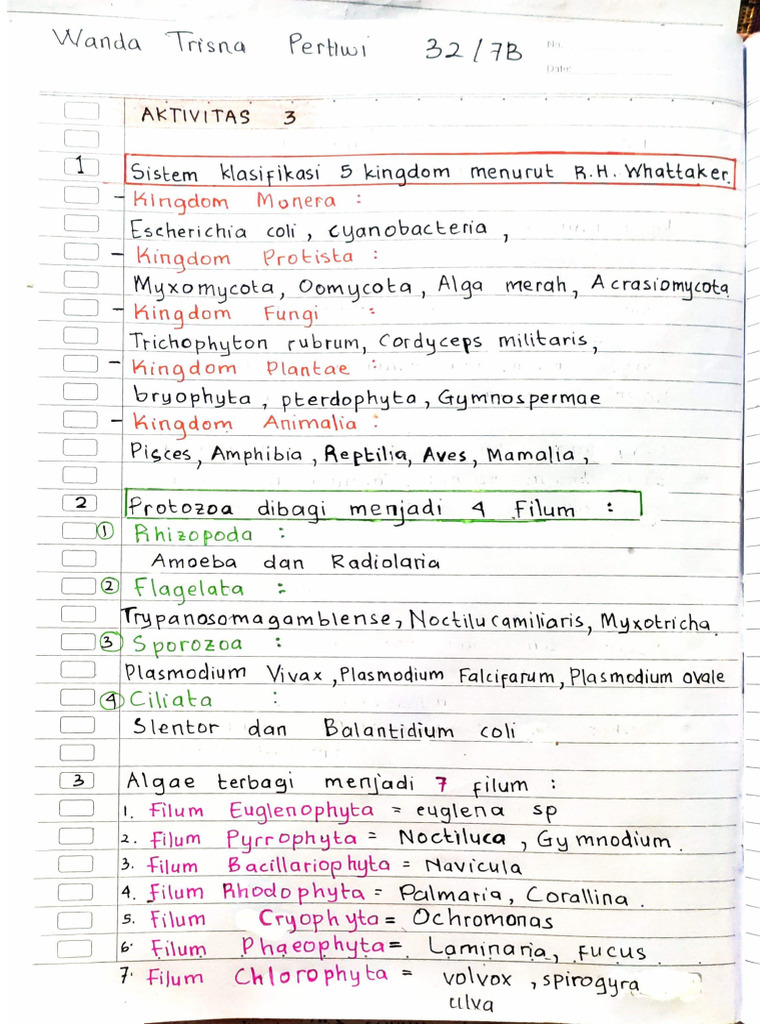 Wanda Trisna Pertiwi 32/7B
No.
Date:
AKTIVITAS 3
1 Sistem klasifikasi 5 kingdom menurut R.H. Whattaker.
- Kingdom Monera :
Escherichia coli, cyanobacteria,
- Kingdom Protista :
Myxomycota, Oomycota, Alga merah, Acrasiomycota
- Kingdom Fungi :
Trichophyton rubrum, Cordyceps militaris,
- Kingdom Plantae :
bryophyta, pterdophyta, Gymnospermae
- Kingdom Animalia :
Pisces, Amphibia, Reptilia, Aves, Mamalia,
2 Protozoa dibagi menjadi 4 Filum :
① Rhizopoda :
Amoeba dan Radiolaria
② Flagelata :
Trypanosomagamblense, Noctilucamiliaris, Myxotricha.
③ Sporozoa :
Plasmodium Vivax, Plasmodium Falcifarum, Plasmodium ovale
④ Ciliata :
Slentor dan Balantidium coli
3 Algae terbagi menjadi 7 filum :
1. Filum Euglenophyta = euglena sp
2. Filum Pyrrophyta = Noctiluca, Gymnodium.
3. Filum Bacillariophyta = Navicula
4. Filum Rhodophyta = Palmaria, Corallina.
5. Filum Cryophyta = Ochromonas
6. Filum Phaeophyta = Laminaria, Fucus.
7. Filum Chlorophyta = volvox, spirogyra
ulva